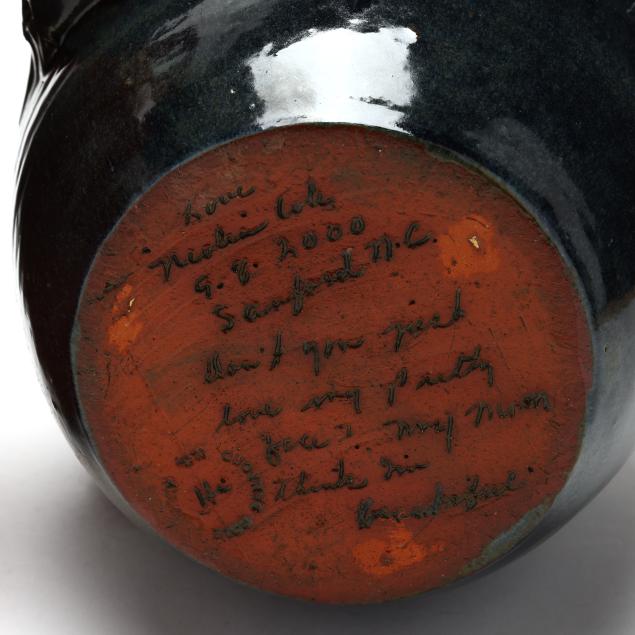 Love
Neolia Cole
9. 8. 2000
Sanford N.C.
Don't you just
love my pretty
face? My Mom
thinks I'm
Beautiful.
Hi